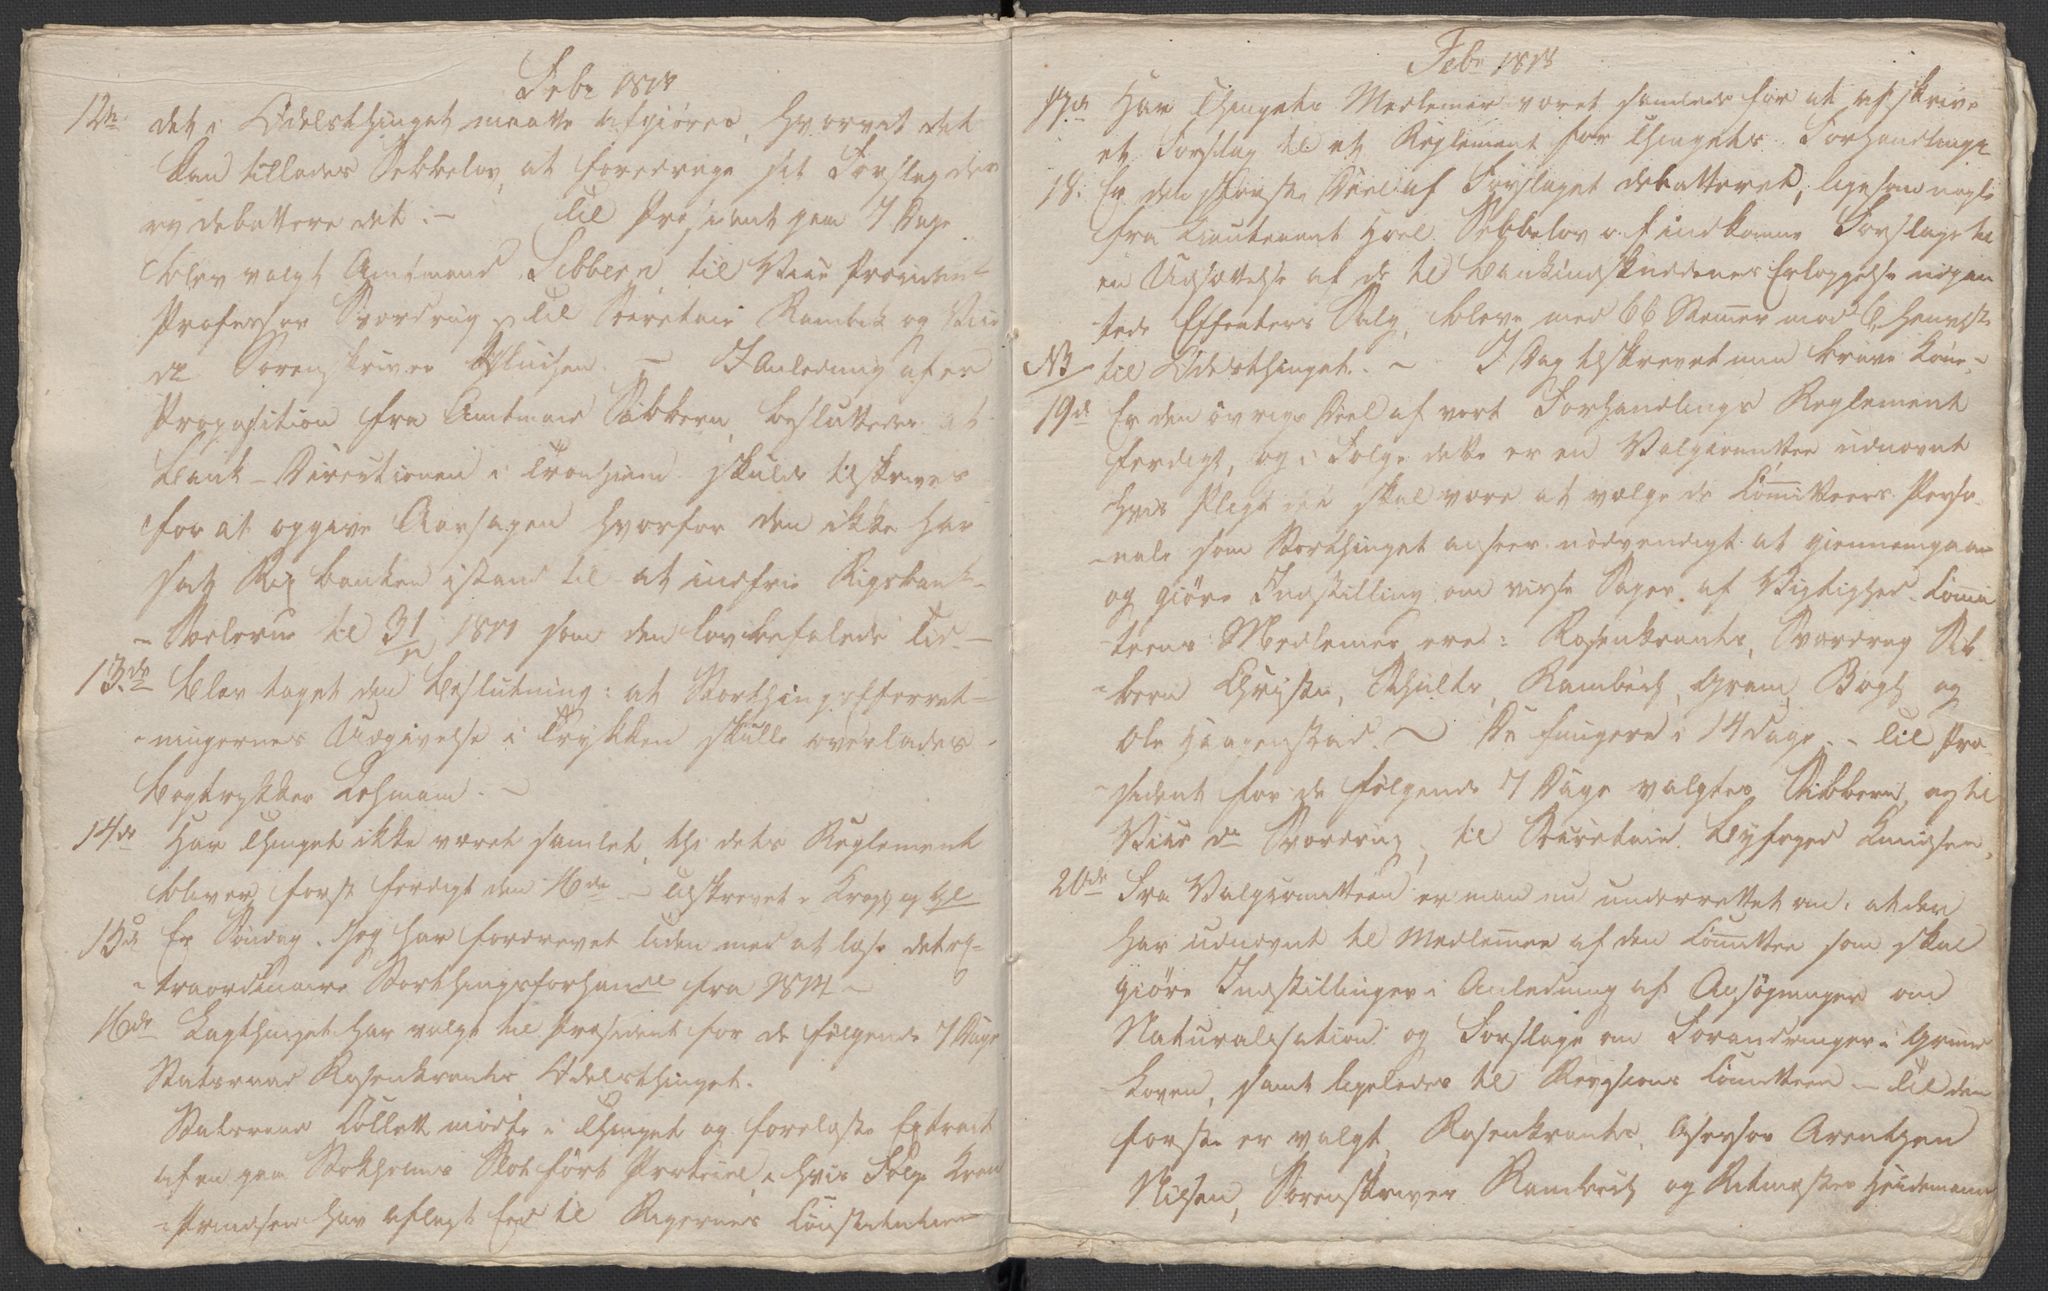 Febr 1818
12te det i Odelsthinget maatte afgiøres, hvorvit det
kan tillades Sebbelov, at foredrage sit Forslag der
og debattere det. — Til Præsident paa 7 Dage
blev valgt Amtmand Sibbern, til Vice Præsident
Professor Sverdrup, til Secretair Rambech og Vice
do Sorenskriver Knudsen. — I Anledning af en
Proposition fra Amtmand Sibbern, besluttedes at
Bank-Directionen i Tronhiem skulde tilskrives
for at opgive Aarsagen hvorfor den ikke har
sat Rix banken istand til at indfrie Rigsbank-
-Sedlerne til 31/ 18 som den lovbefalede Tid —
13de blev taget den beslutning: at Storthingsefterret-
-ningernes Udgivelse i Trykken skulle overlades
bogtrykker Lehmann. —
14de Har Thinget ikke været samlet, thi dets Reglement
bliver først ferdigt den 16de — Tilskrevet
15de Er Søndag. Jeg har fordrevet Tiden med at læse det ex-
-traordinaire Storthingsforhandl fra 1814 —
16de Lagthinget har valgt til Præsident for de følgende 7 Dage
Statsraad Rosenkrantz Odelsthinget.
Statsraad Collett mødte i Thinget og forelæste Extract
af en paa Stokholms Slot ført Protocol, i hvis Følge Kron
-Prindsen har aflagt Eed til Rigernes Constitution
Febr 1818
17de Har Thingets Medlemer været samlede for at afskrive
et Forslag til et Reglement for Thingets Forhandlinger
18. Er den største Deel af Forslaget debatteret, ligesom nogle
fra Lieutenant Hoel Sebbelov o. f. indkomne Forslage til
en Udsættelse af de til bankindskuddenes Erlæggelse udpan
tede Effecters Salg, bleve med 66 Stemer mod 6, henviste
NB til Odelsthinget. — I Dag tilskrevet min brave Kone.
19de Er den øvrige Deel af vort Forhandlings Reglement
ferdigt, og i Følge dette er en Valgcomittee udnævnt
hvis Pligt det skal være at vælge de Comitteers Perso-
-nale som Storthinget anseer nødvendigt at giennemgaae
og giøre Indstilling om visse Sager af Vigtighed. Comi
teens Medlemer ere: Rosenkrantz, Sverdrup Sib
-bern Christie, Schultz, Rambech, Gram, Bogh og
Ole Haagenstad. — De fungere i 14 Dage. — Til Præ
-sident for de følgende 7 Dage valgtes Sibbern, og til
Vice do Sverdrup, til Secretair Byfoged Knudsen.
20de Fra Valgcomitteen er man nu underrettet om: at den
har udnævnt til Medlemer af den Comittee som skal
giøre Indstillinger i Anledning af Ansøgninger om
Naturalisation og Forslage om Forandringer i Grund
Loven, samt ligeledes til Revisions Comitteen — Til den
første er valgt, Rosenkrantz, Assessor Arentzen
Nilsen, Sorenskriver Rambech og Ritmester Heidemann